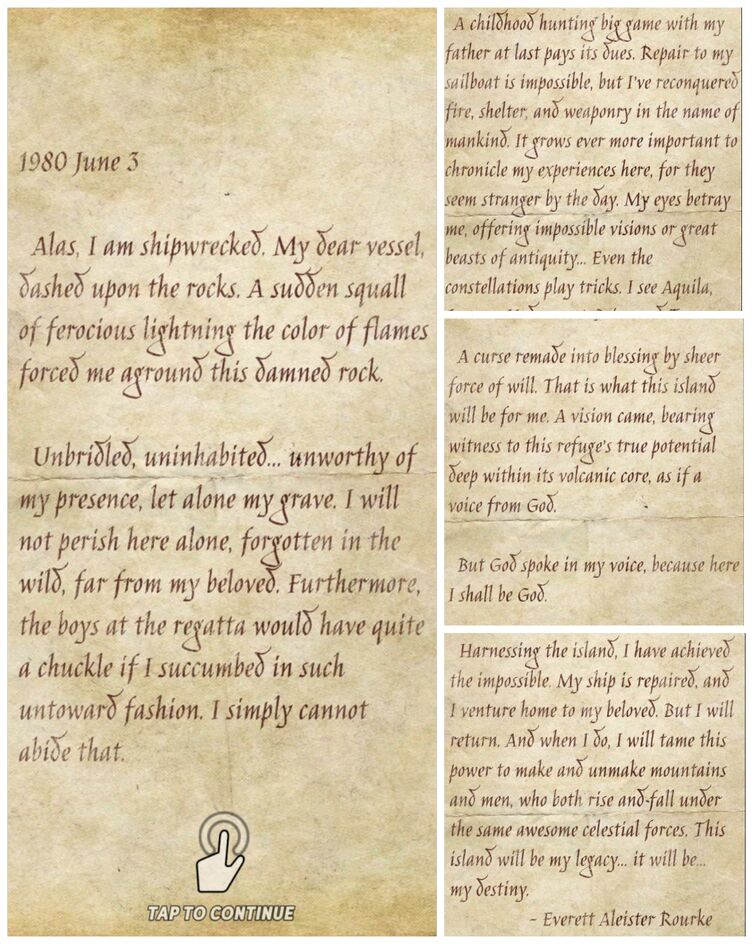 1980 June 3
Alas, I am shipwrecked. My dear vessel,
dashed upon the rocks. A sudden squall
of ferocious lightning the color of flames
forced me aground this damned rock.
Unbridled, uninhabited... unworthy of
my presence, let alone my grave. I will
not perish here alone, forgotten in the
wild, far from my beloved. Furthermore,
the boys at the regatta would have quite
a chuckle if I succumbed in such
untoward fashion. I simply cannot
abide that.
TAP TO CONTINUE
A childhood hunting big game with my
father at last pays its dues. Repair to my
sailboat is impossible, but I've reconquered
fire, shelter, and weaponry in the name of
mankind. It grows ever more important to
chronicle my experiences here, for they
seem stranger by the day. My eyes betray
me, offering impossible visions or great
beasts of antiquity... Even the
constellations play tricks. I see Aquila,
A curse remade into blessing by sheer
force of will. That is what this island
will be for me. A vision came, bearing
witness to this refuge's true potential
deep within its volcanic core, as if a
voice from God.
But God spoke in my voice, because here
I shall be God.
Harnessing the island, I have achieved
the impossible. My ship is repaired, and
I venture home to my beloved. But I will
return. And when I do, I will tame this
power to make and unmake mountains
and men, who both rise and fall under
the same awesome celestial forces. This
island will be my legacy... it will be...
my destiny.
- Everett Aleister Rourke